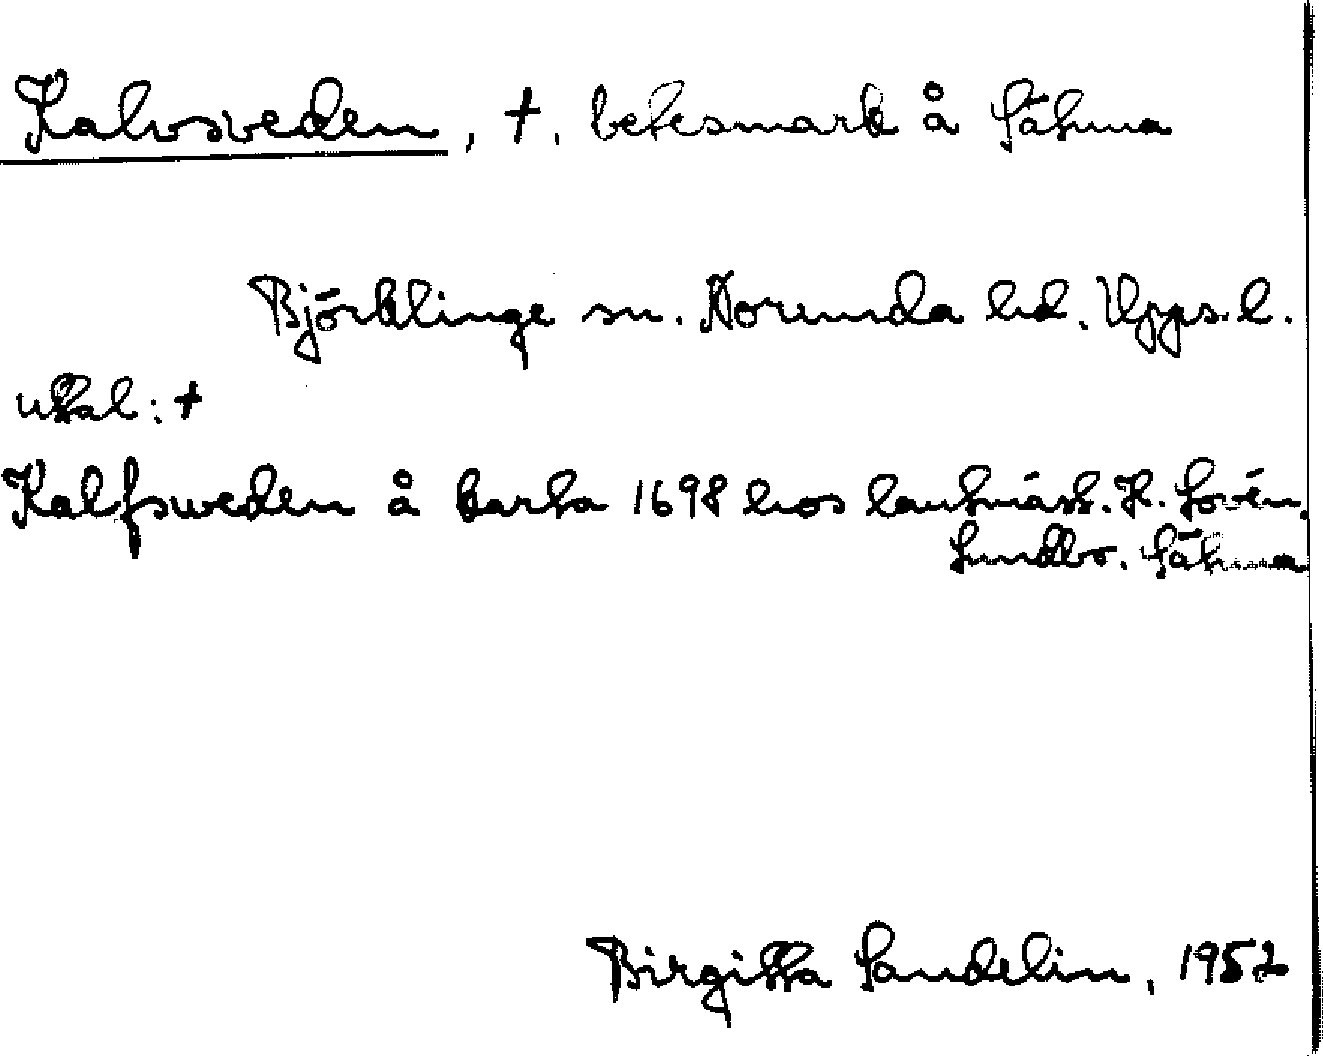 Kalvsveden, †. betesmark å Sätuna
Björklinge sn. Norunda hd. Upps. l.
uttal: †
Kalfsweden å karta 1698 hos lantmäst. H. Lovén.
Lundbo. Sätuna
Birgitta Sandelin, 1952